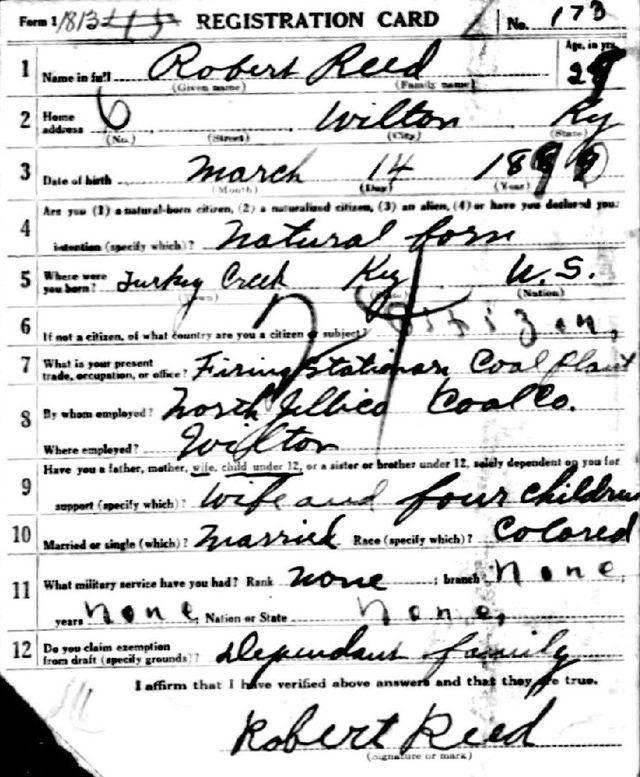 Form 1 1813 REGISTRATION CARD No. 173
1 Name in full Robert Reed Age, in yrs.
(Given name) (Family name)
2 Home address 6 Wilton Ky
(No.) (Street) (City) (State)
3 Date of birth March 14 18
(Month) (Day) (Year)
4 Are you (1) a natural-born citizen, (2) a naturalized citizen, (3) an alien, (4) or have you declared your
intention (specify which)? natural born
5 Where were you born? Turkey Creek Ky U.S.
(Town) (State) (Nation)
6 If not a citizen, of what country are you a citizen or subject? citizen,
7 What is your present trade, occupation, or office? Firing Stationary Coal plant
8 By whom employed? North Jellico Coal Co.
Where employed? Wilton
9 Have you a father, mother, wife, child under 12, or a sister or brother under 12, solely dependent on you for
support (specify which)? Wife and four children
10 Married or single (which)? Married Race (specify which)? Colored
11 What military service have you had? Rank none ; branch None,
years None, Nation or State None,
12 Do you claim exemption from draft (specify grounds)? Dependant family
I affirm that I have verified above answers and that they are true.
Robert Reed
(Signature or mark)